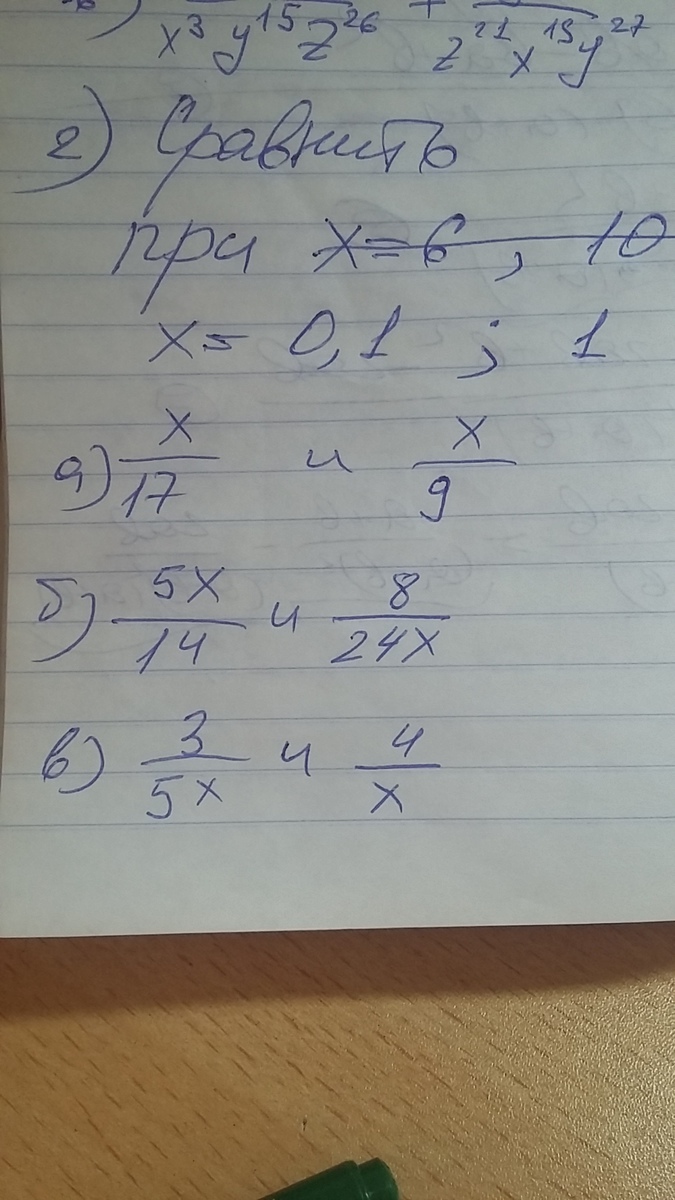 x³y¹⁵z²⁶ + z²¹x¹⁹y²⁷
2) Сравнить
при x=6, 10
x= 0,1 ; 1
а) x/17 и x/9
б) 5x/14 и 8/24x
в) 3/5x и 4/x